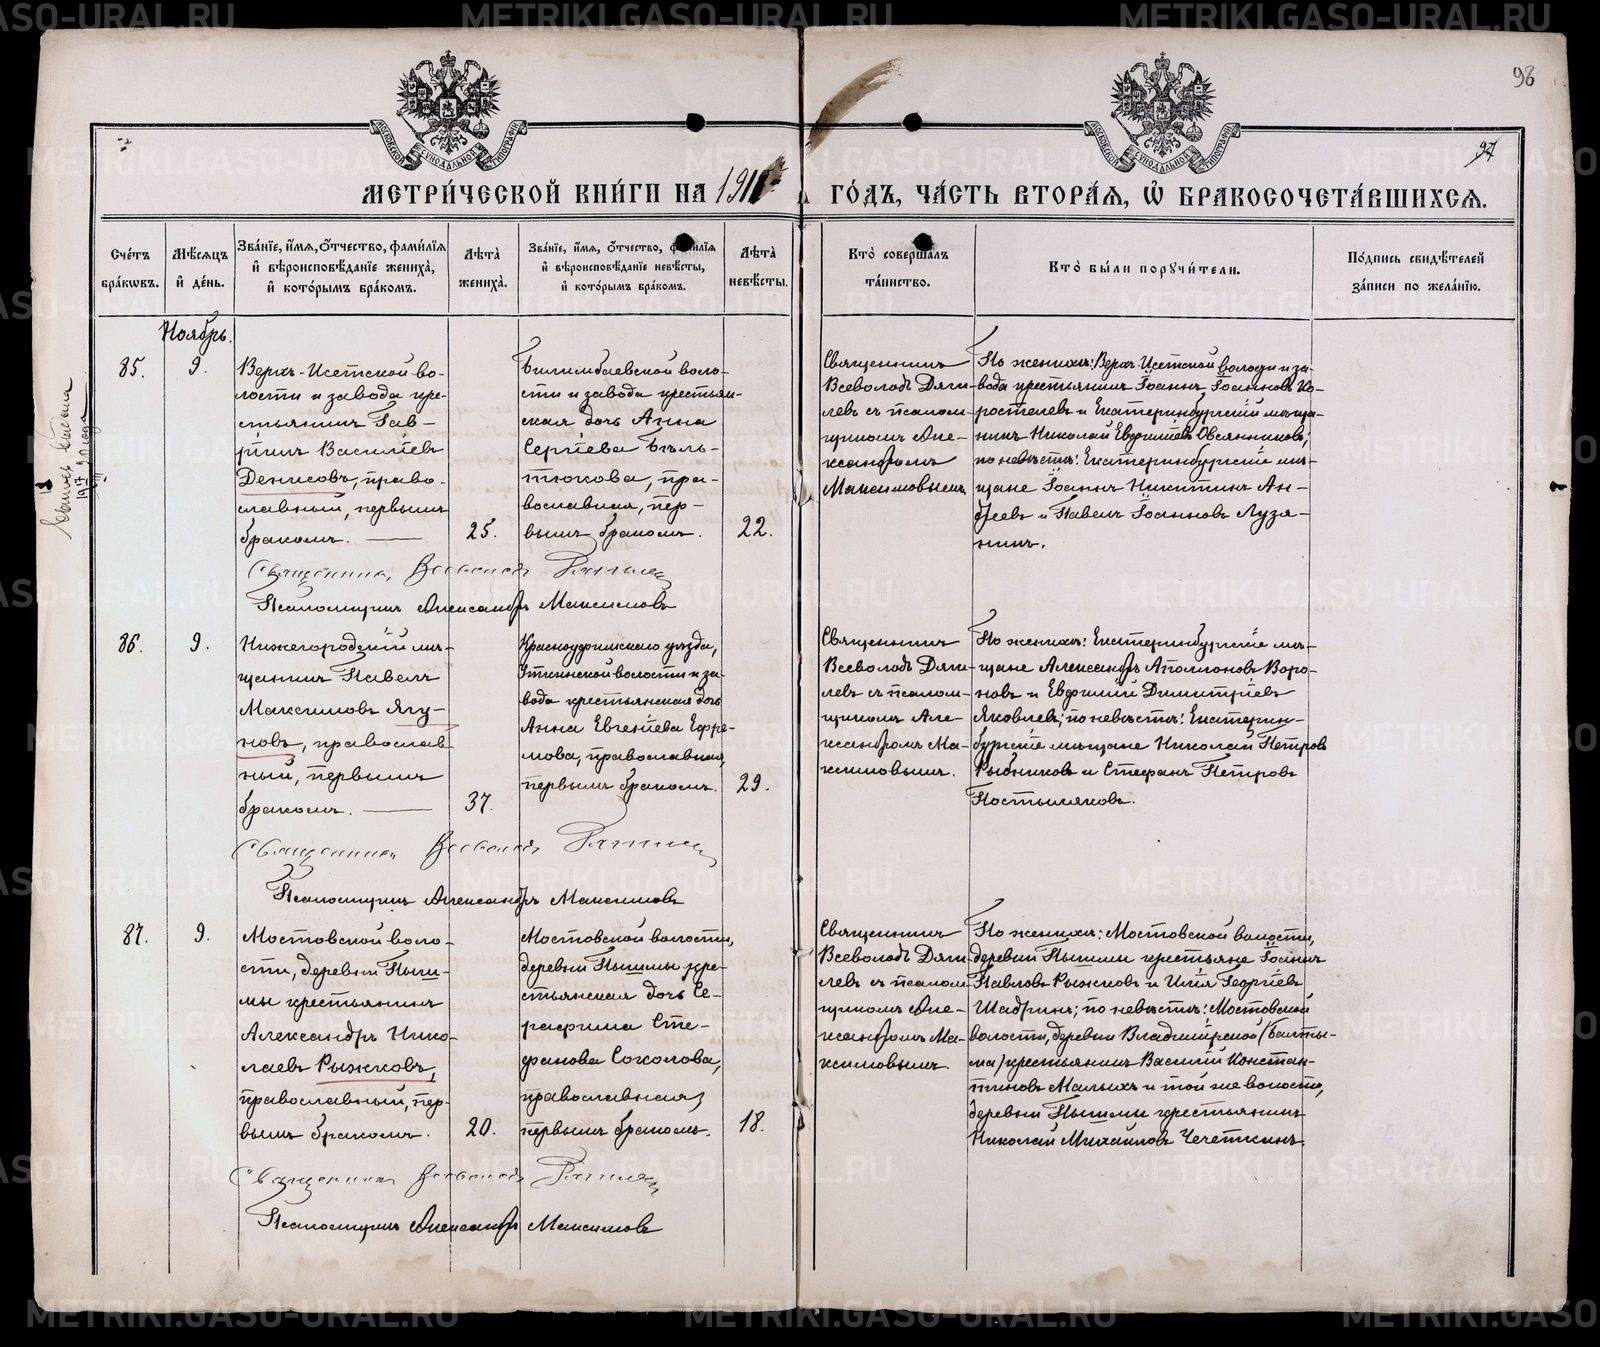 98
97
МОСКОВСКОЙ СѴНОДАЛЬНОЙ ТИПОГРАФІИ
МОСКОВСКОЙ СѴНОДАЛЬНОЙ ТИПОГРАФІИ
МЕТРИ́ЧЕСКОЙ КНИ́ГИ НА 191
ГО́ДЪ, ЧА́СТЬ ВТОРА́Я, Ѽ БРАКОСОЧЕТА́ВШИХСЯ.
Сче́тъ бра́кѡвъ.
Мѣ́сяцъ и҆ де́нь.
Зва́нїе, и҆́мя, ѻ҆́тчество, фами́лїя и҆ вѣроисповѣ́данїе жениха̀, и҆ кото́рымъ бра́комъ.
Лѣ́та жениха̀.
Зва́нїе, и҆́мя, ѻ҆́тчество, фами́лїя и҆ вѣроисповѣ́данїе невѣ́сты, и҆ кото́рымъ бра́комъ.
Лѣ́та невѣ́сты.
Кто̀ соверша́лъ та́инство.
Кто̀ бы́ли порꙋчи́тели.
По́дпись свидѣ́телей за́писи по жела́нїю.
Ноябрь.
85.
9.
Верхъ-Исетской во-
лости и завода кре-
стьянинъ Гав-
рiилъ Василiевъ
Денисовъ, право-
славный, первымъ
бракомъ.
25.
Билимбаевской воло-
сти и завода крестьян-
ская дочь Анна
Сергiева Бѣль-
тюкова, пра-
вославная, пер-
вымъ бракомъ.
22.
Священникъ
Всеволодъ Дяги-
левъ съ псалом-
щикомъ Але-
ксандромъ
Максимовымъ
По женихѣ: Верхъ-Исетской волости и за-
вода крестьянинъ Iоаннъ Iоанновъ Ко-
ростелевъ и Екатеринбургскiй мѣща-
нинъ Николай Евфимiевъ Овсянниковъ;
по невѣстѣ: Екатеринбургскiе мѣ-
щане Iоаннъ Никитинъ Ан-
дреевъ и Павелъ Iоанновъ Лузя-
нинъ.
Священникъ Всеволодъ Дягилевъ
Псаломщикъ Александръ Максимовъ
86.
9.
Нижегородскiй мѣ-
щанинъ Павелъ
Максимовъ Ягу-
новъ, православ-
ный, первымъ
бракомъ.
37.
Красноуфимскаго уѣзда,
Уткинской волости и за-
вода крестьянская дочь
Анна Евгенiева Ефре-
мова, православная,
первымъ бракомъ.
29.
Священникъ
Всеволодъ Дяги-
левъ съ псалом-
щикомъ Але-
ксандромъ Ма-
ксимовымъ.
По женихѣ: Екатеринбургскiе мѣ-
щане Александръ Аполлоновъ Воро-
новъ и Евфимiй Димитрiевъ
Яковлевъ; по невѣстѣ: Екатерин-
бургскiе мѣщане Николай Петровъ
Рыбниковъ и Стефанъ Петровъ
Постыляковъ.
Священникъ Всеволодъ Дягилевъ
Псаломщикъ Александръ Максимовъ
87.
9.
Мостовской воло-
сти, деревни Пыш-
мы крестьянинъ
Александръ Нико-
лаевъ Рыжковъ,
православный, пер-
вымъ бракомъ.
20.
Мостовской волости,
деревни Пышмы кре-
стьянская дочь Се-
рафима Сте-
фанова Соколова,
православная,
первымъ бракомъ.
18.
Священникъ
Всеволодъ Дяги-
левъ съ псалом-
щикомъ Але-
ксандромъ Ма-
ксимовымъ
По женихѣ: Мостовской волости,
деревни Пышмы крестьяне Iоаннъ
Павловъ Рыжковъ и Илiя Георгiевъ
Шадринъ; по невѣстѣ: Мостовской
волости, деревни Владимiрской /Балты-
ма/ крестьянинъ Василiй Констан-
тиновъ Малыхъ и той же волости,
деревни Пышмы крестьянинъ
Николай Михайловъ Чечеткинъ.
Священникъ Всеволодъ Дягилевъ
Псаломщикъ Александръ Максимовъ
METRIKI.GASO-URAL.RU